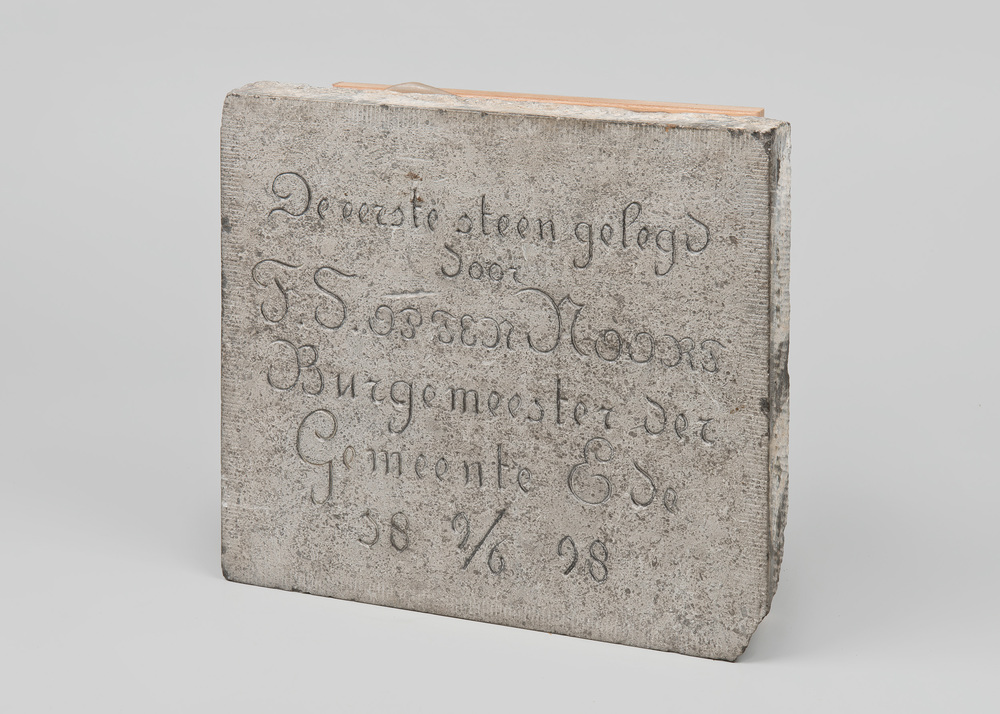 De eerste steen gelegd
door
T. S. OP TEN NOORT
Burgemeester der
Gemeente Ede
18 2/6 98